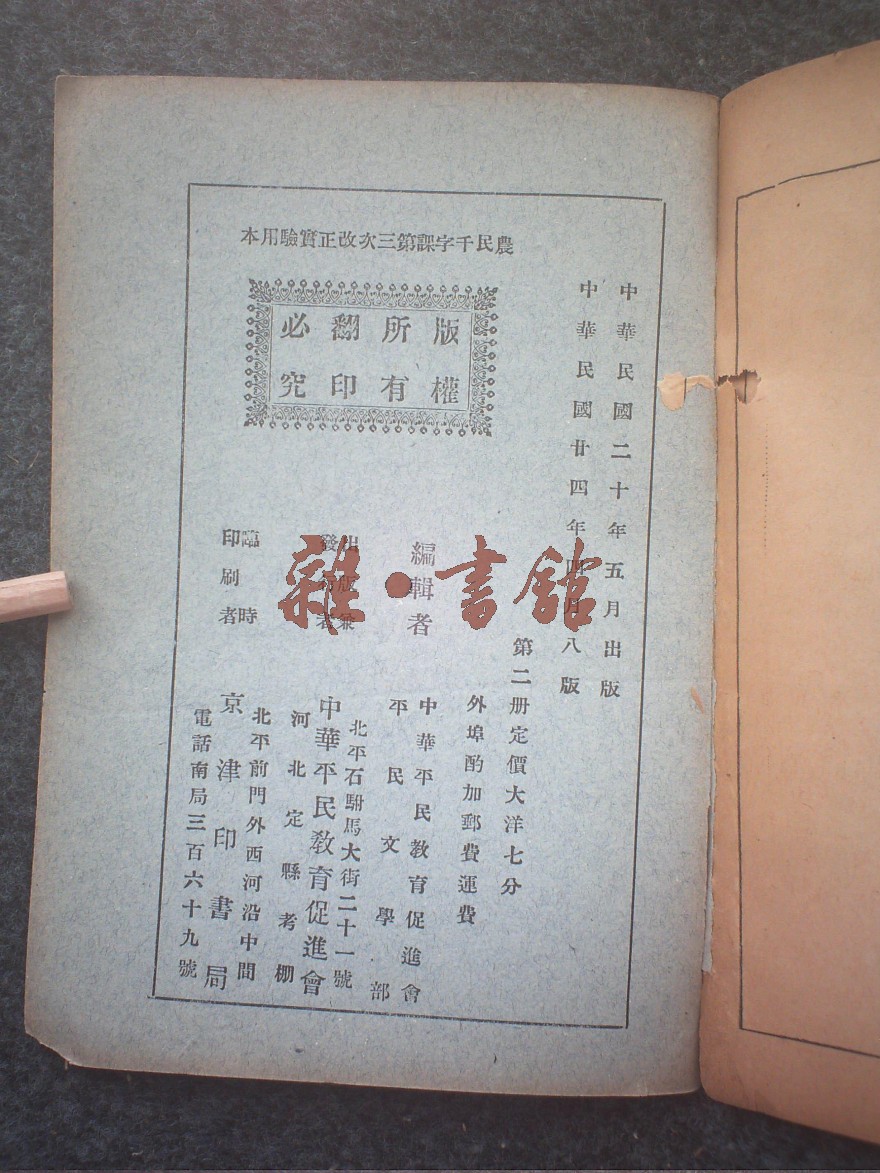 農民千字課第三次改正實驗用本
版權
所有
翻印
必究
中華民國二十年五月出版
中華民國廿四年四月八版
第二册定價大洋七分
外埠酌加郵費運費
編輯者
中華平民教育促進會
平民文學部
出版兼
發行者
北平石駙馬大街二十一號
中華平民教育促進會
河北定縣考棚
臨時
印刷者
北平前門外西河沿中間
京津印書局
電話南局三百六十九號
雜·書館